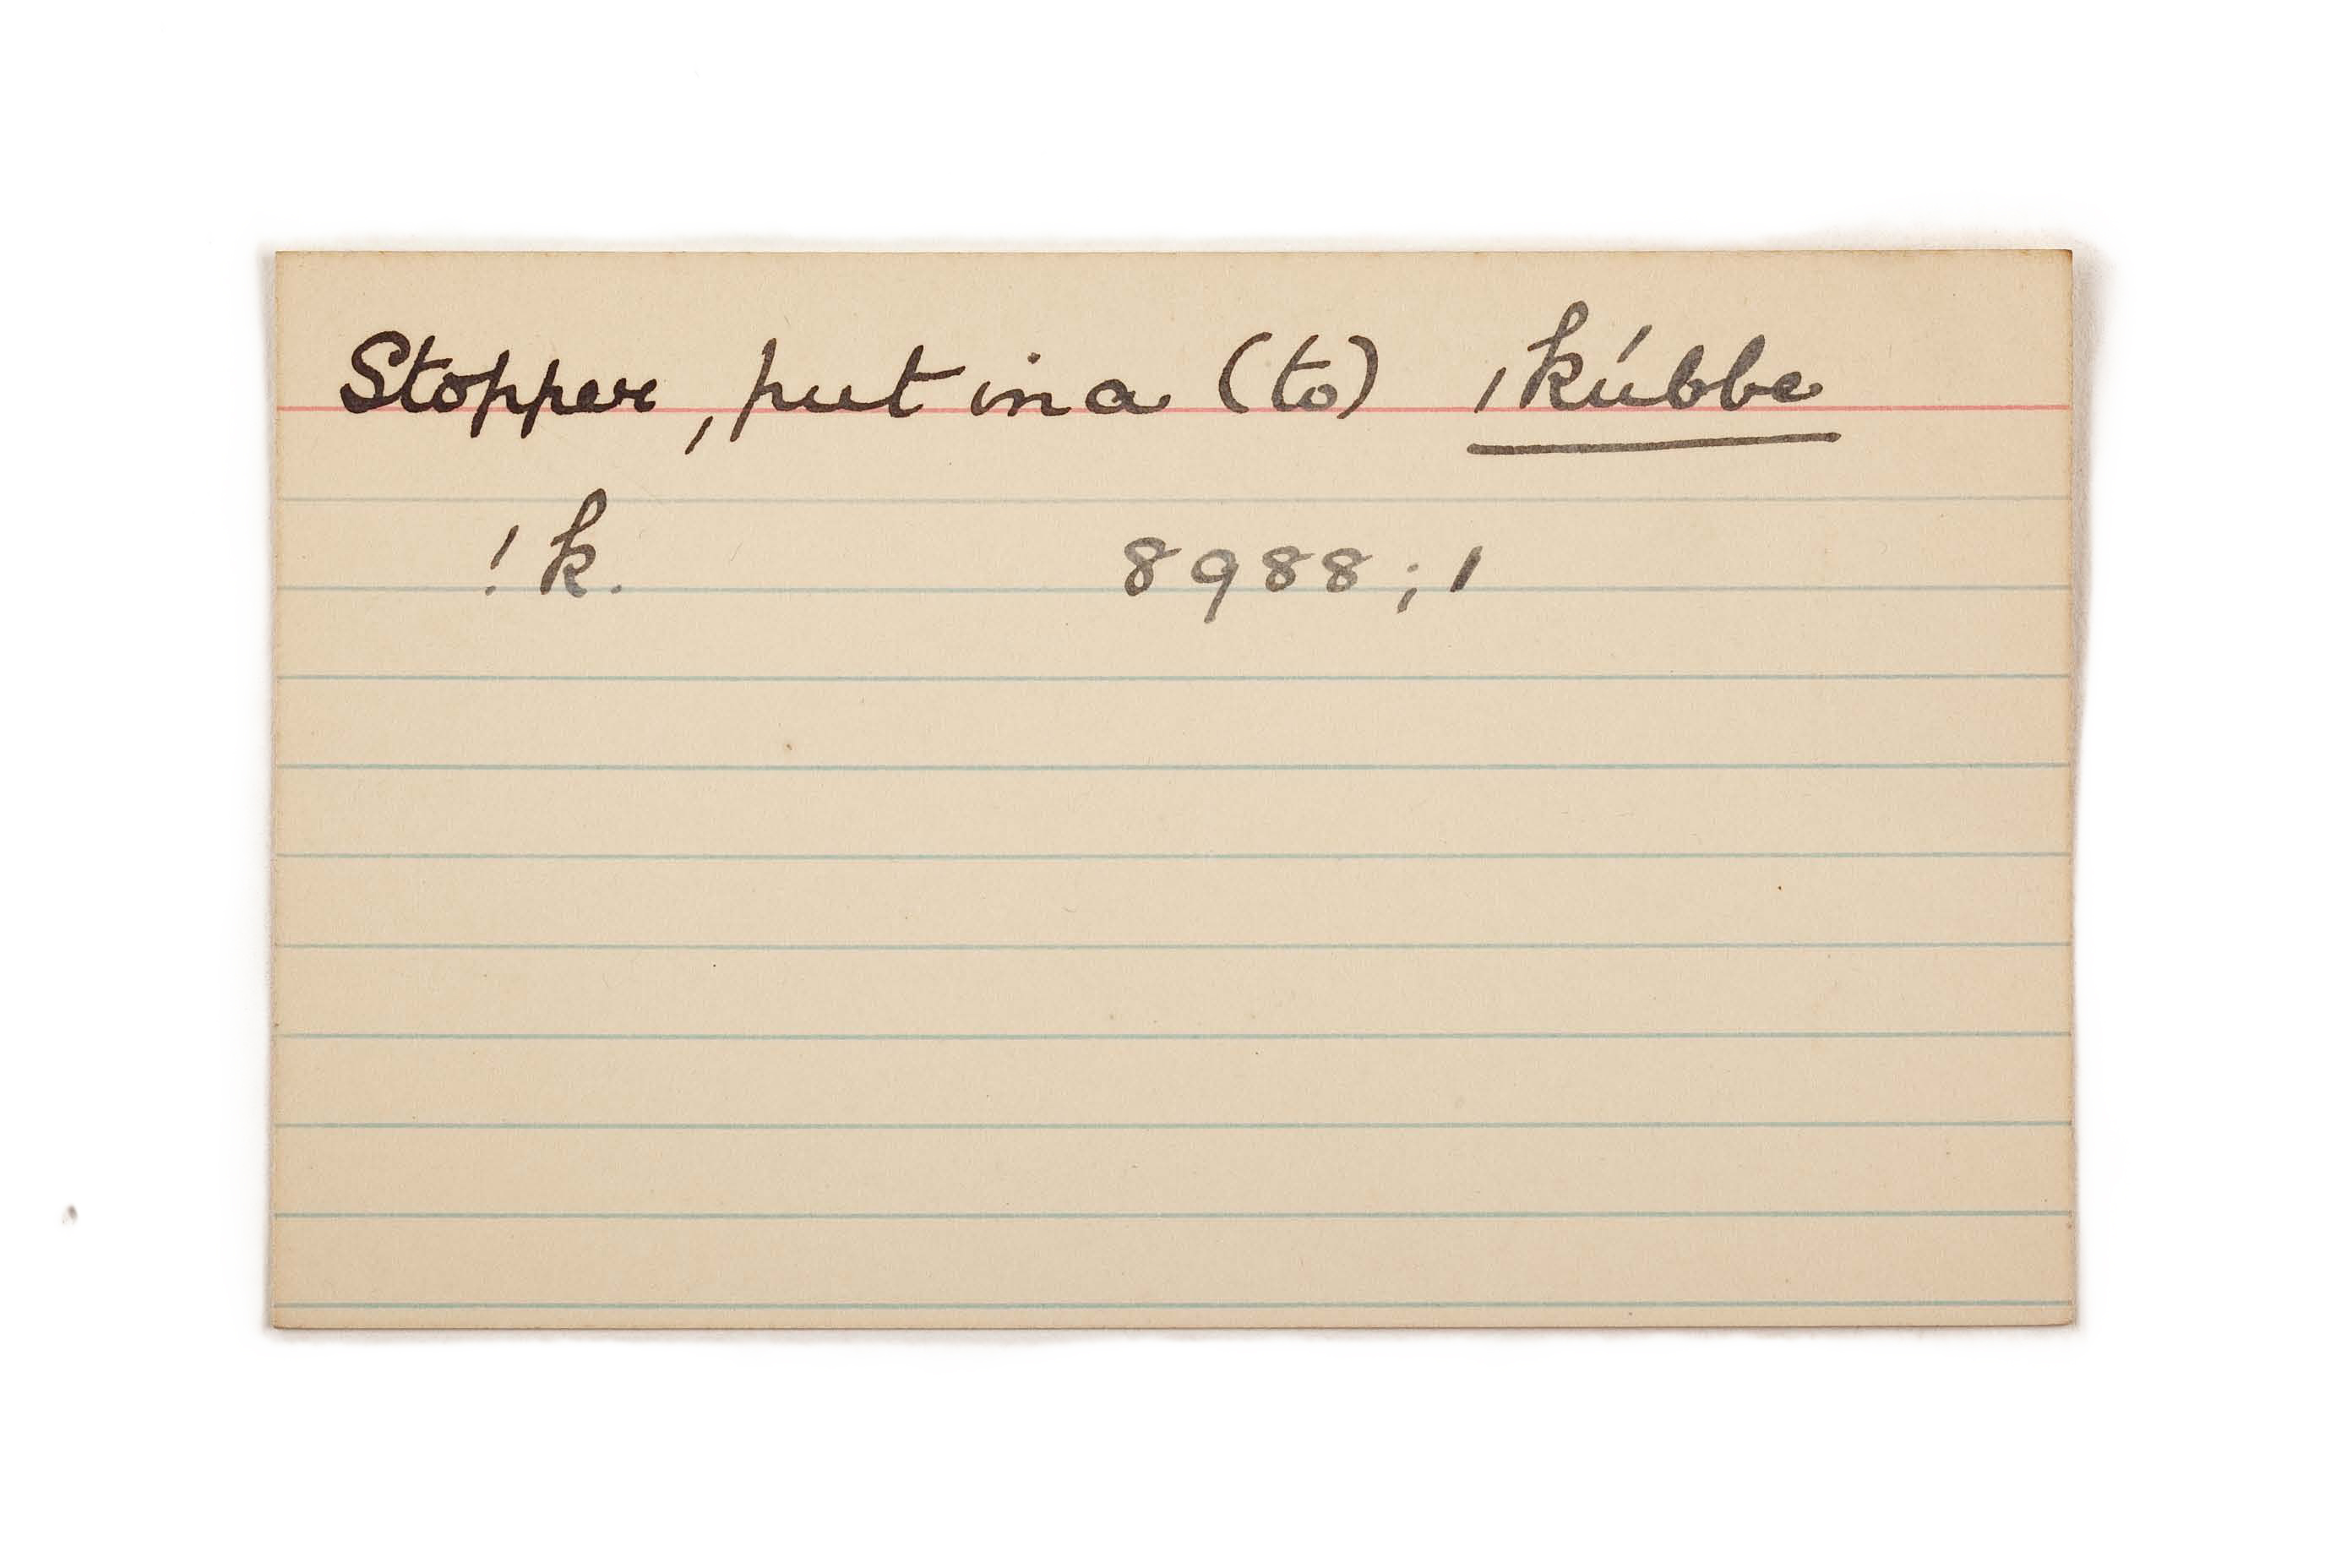 Stopper, put in a (to) ˌkúbbe
!k. 8988; 1